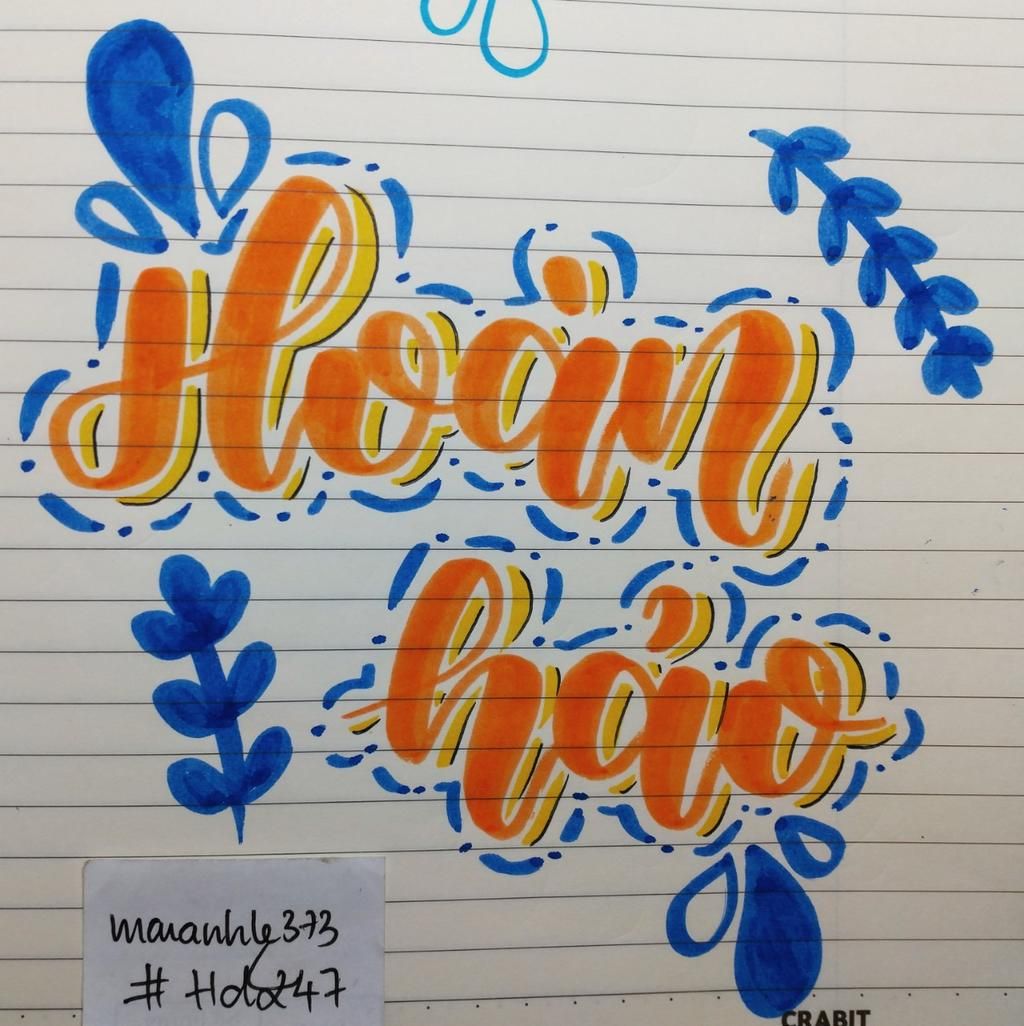 Hoàn
hảo
maianhle373
CRABIT